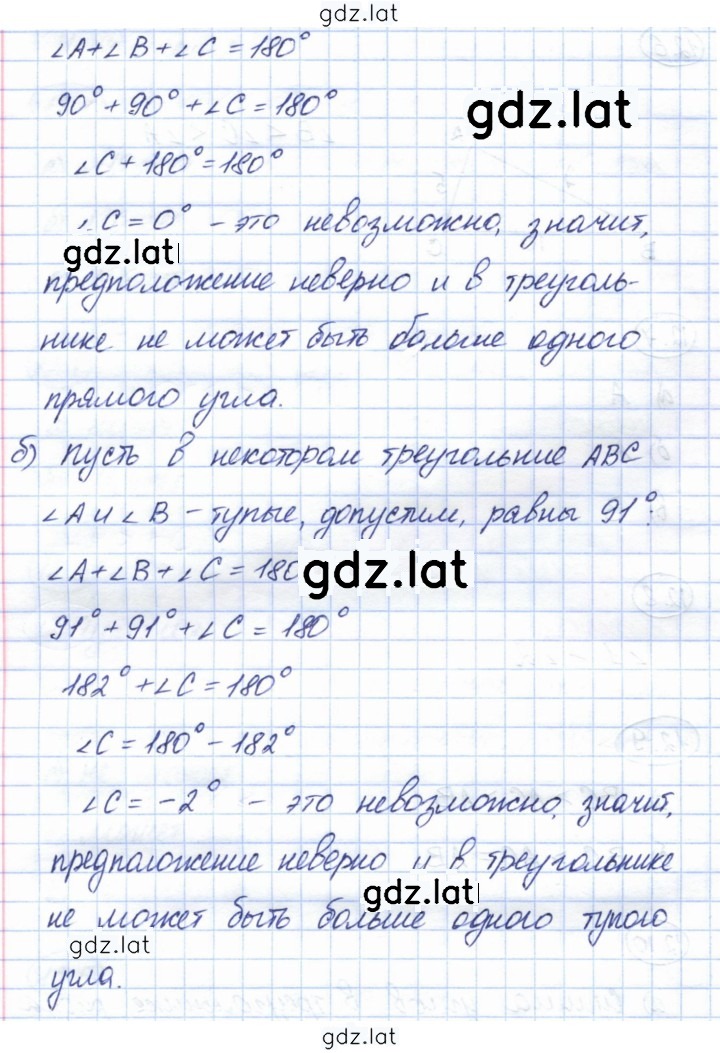 gdz.lat
∠A+∠B+∠C=180°
90°+90°+∠C=180°
gdz.lat
∠C+180°=180°
∠C=0° – это невозможно, значит,
gdz.lat
предположение неверно и в треуголь-
нике не может быть больше одного
прямого угла.
б) Пусть в некотором треугольние ABC
∠A и ∠B – тупые, допустим, равны 91°:
∠A+∠B+∠C=180
gdz.lat
91°+91°+∠C=180°
182°+∠C=180°
∠C=180°-182°
∠C=-2° – это невозможно, значит,
предположение неверно и в треугольнике
gdz.lat
не может быть больше одного тупого
gdz.lat
угла.
gdz.lat